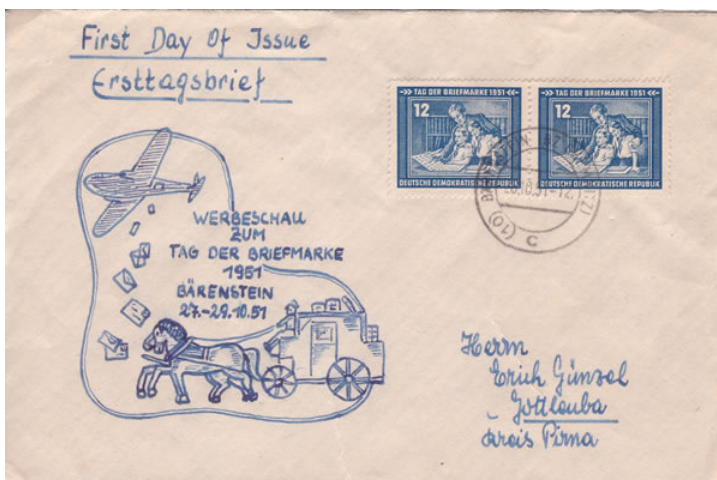 First Day Of Issue
Ersttagsbrief
TAG DER BRIEFMARKE 1951
12
DEUTSCHE DEMOKRATISCHE REPUBLIK
TAG DER BRIEFMARKE 1951
12
DEUTSCHE DEMOKRATISCHE REPUBLIK
(10)
c
WERBESCHAU
ZUM
TAG DER BRIEFMARKE
1951
BÄRENSTEIN
27.-29.10.51
Herrn
Erich Günzel
Gottleuba
Kreis Pirna